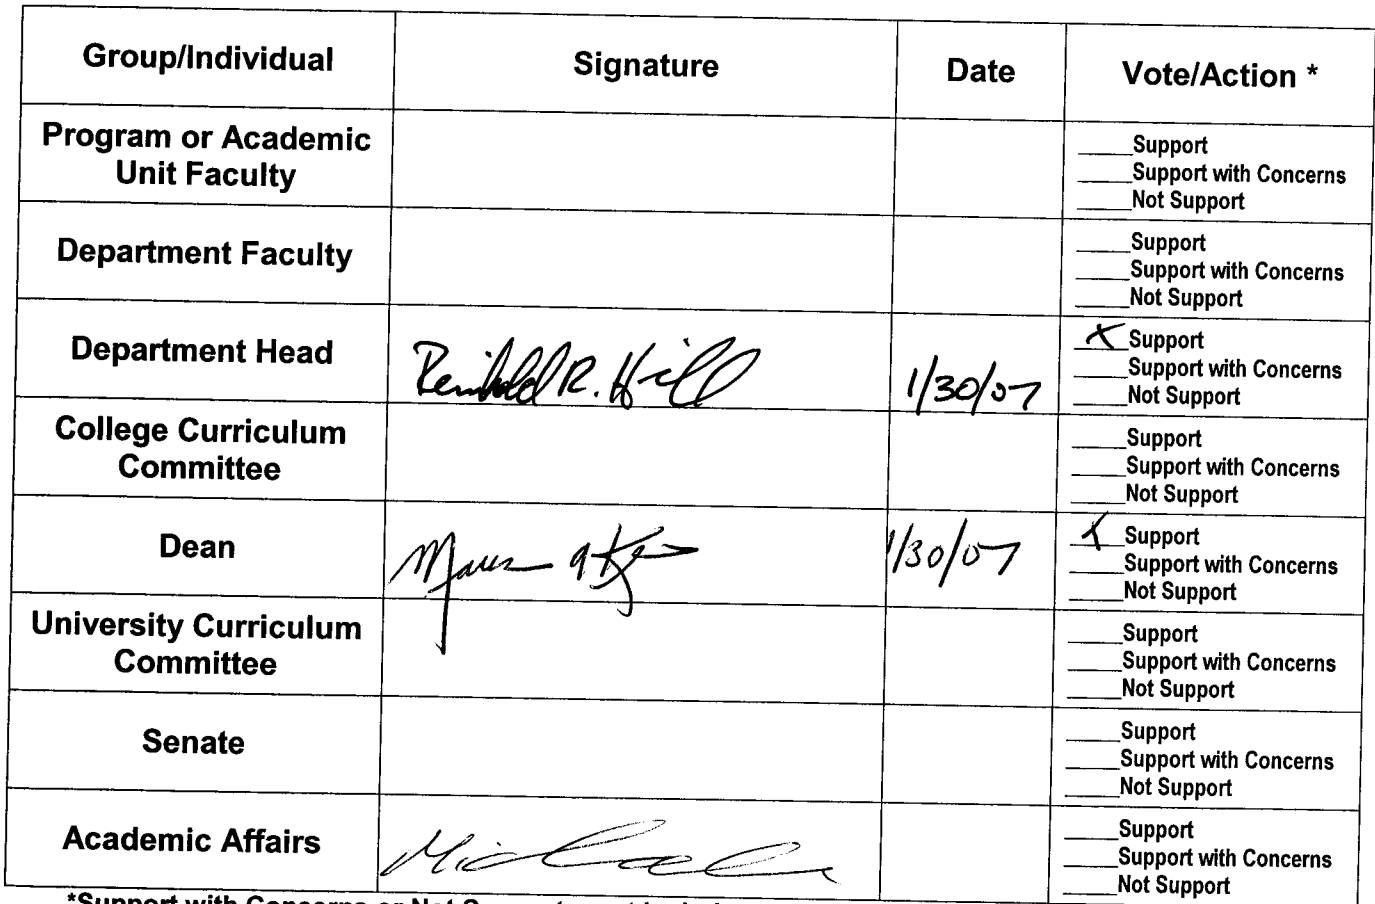 Group/Individual Signature Date Vote/Action *
Program or Academic
Unit Faculty
____Support
____Support with Concerns
____Not Support
Department Faculty
____Support
____Support with Concerns
____Not Support
Department Head Reinhold R. Hill 1/30/07
X Support
____Support with Concerns
____Not Support
College Curriculum
Committee
____Support
____Support with Concerns
____Not Support
Dean 1/30/07
X Support
____Support with Concerns
____Not Support
University Curriculum
Committee
____Support
____Support with Concerns
____Not Support
Senate
____Support
____Support with Concerns
____Not Support
Academic Affairs
____Support
____Support with Concerns
____Not Support
*Support with Concerns or Not Support